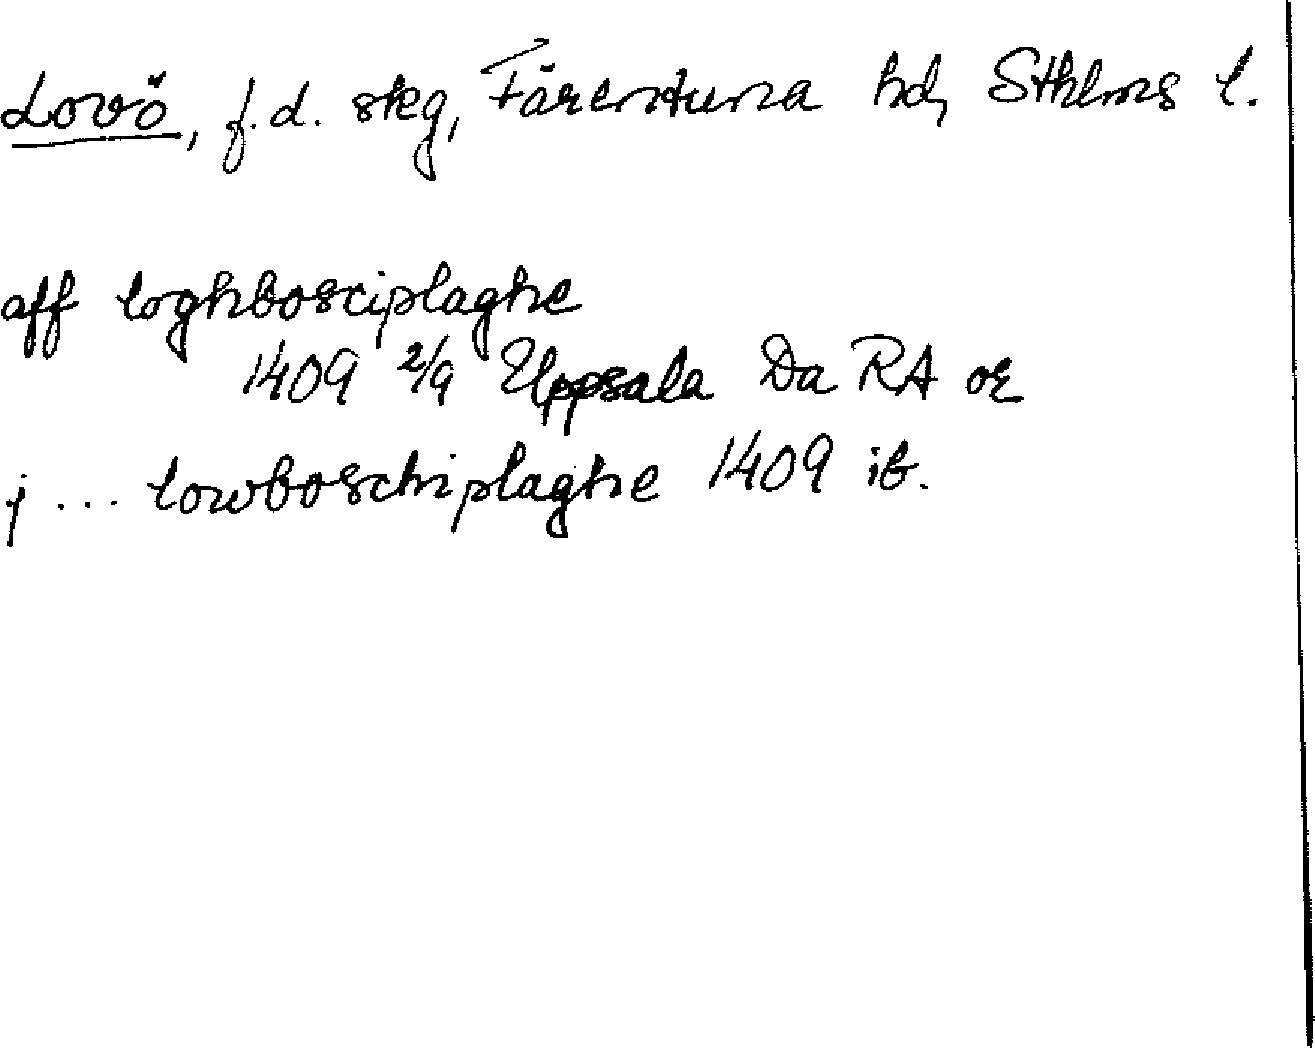 Lovö, f.d. skg, Färentuna hd, Sthlms l.
aff loghbosciplaghe
1409 2/9 Uppsala Da RA or
j ... lowboschiplaghe 1409 ib.